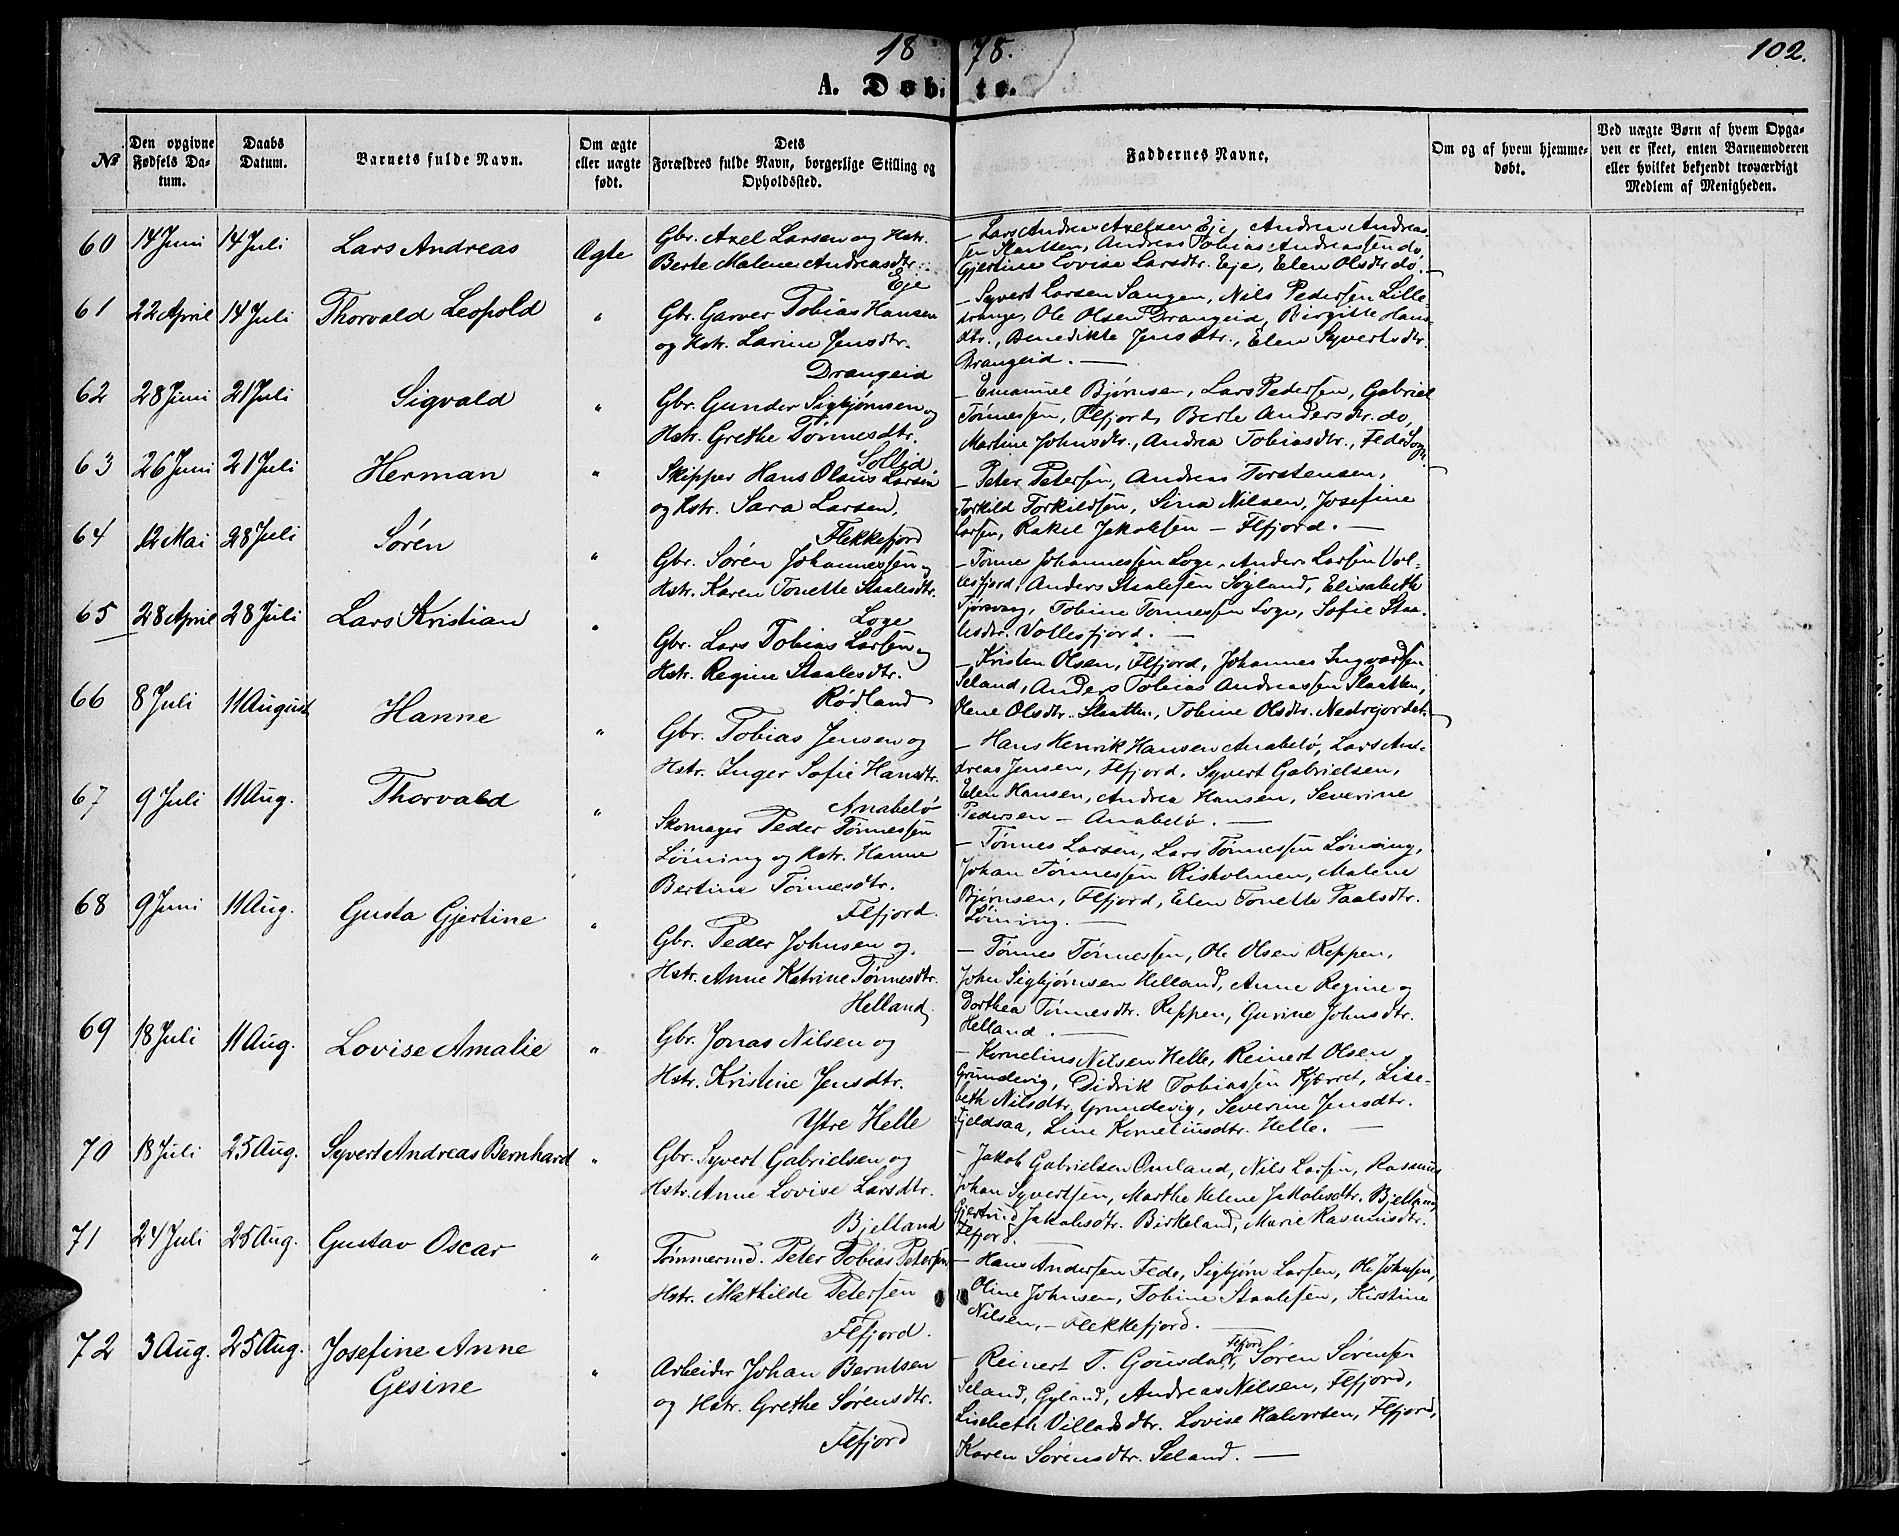 1878.
102.
A. Døbte.
No
Den opgivne Fødsels Datum.
Daabs Datum.
Barnets fulde Navn.
Om ægte eller uægte født.
Dets Forældres fulde Navn, borgerlige Stilling og Opholdssted.
Faddernes Navne.
Om og af hvem hjemmedøbt.
Ved uægte Børn af hvem Opgaven er skeet, enten Barnemoderen eller hvilket bekjendt troværdigt Medlem af Menigheden.
60 14 Juni 14 Juli Lars Andreas Ægte
Gbr. Axel Larsen og Hstr.
Berte Malene Andreasdtr.
Eje
– Lars Andreas Axelsen Eje, Andreas Andreas-
sen Slaatten, Andreas Tobias Andreassen do,
Gjertine Lovise Larsdtr. Eje, Elen Olsdtr. do. –
61 22 April 14 Juli Thorvald Leopold "
Gbr. Garver Tobias Hansen
og Hstr. Larine Jensdtr.
Drangeid
– Syvert Larsen Sangen, Nils Pedersen Lille-
drange, Ole Olsen Drangeid, Birgitte Hans-
dtr., Benedikte Jensdtr., Elen Syvertsdtr.
Drangeid. –
62 28 Juni 21 Juli Sigvald "
Gbr. Gunder Sigbjørnsen og
Hstr. Grethe Tønnesdtr.
Sollid.
– Emanuel Bjørnsen, Lars Pedersen, Gabriel
Tønnessen, Flfjord, Berte Andersdtr. do,
Martine Johnsdtr., Andrea Tobiasdtr., Fede Sogn.
63 26 Juni 21 Juli Herman "
Skipper Hans Olaus Larsen
og Hstr. Sara Larsen,
Flekkefjord
– Peter Petersen, Andreas Torstensen,
Torkild Torkildsen, Sina Nilsen, Josefine
Larsen, Rakel Jakobsen – Flfjord. –
64 12 Mai 28 Juli Søren "
Gbr. Søren Johannessen og
Hstr. Karen Tonette Staalesdtr.
Loge
– Tønne Johannessen Loge, Anders Larsen Vol-
lesfjord, Anders Staalesen Søyland, Elisabeth
Tjørsvaag, Tobine Tønnessen Loge, Sofie Staa-
lesdtr. Vollesfjord. –
65 28 April 28 Juli Lars Kristian "
Gbr. Lars Tobias Larsen og
Hstr. Regine Staalesdtr.
Rødland
– Kristen Olsen, Flfjord, Johannes Ingvardsen
Seland, Anders Tobias Andreassen Slaatten,
Olene Olsdtr. Slaatten, Tobine Olsdtr. Nedrejordet.
66 8 Juli 11 August Hanne "
Gbr. Tobias Jensen og
Hstr. Inger Sofie Hansdtr.
Anabelø
– Hans Henrik Hansen Anabelø, Lars An-
dreas Jensen, Flfjord, Syvert Gabrielsen,
Elen Hansen, Andrea Hansen, Severine
Pedersen – Anabelø. –
67 9 Juli 11 Aug. Thorvald "
Skomager Peder Tønnessen
Løining og Hstr. Hanne
Bertine Tønnesdtr.
Flfjord.
– Tønnes Larsen, Lars Tønnessen Løining,
Johan Tønnessen Risholmen, Malene
Bjørnsen, Flfjord, Elen Tonette Paalsdtr.
Løining. –
68 9 Juni 11 Aug. Gusta Gjertine "
Gbr. Peder Johnsen og
Hstr. Anne Katrine Tønnesdtr.
Helland
– Tønnes Tønnessen, Ole Olsen Reppen,
John Sigbjørnsen Helland, Anne Regine og
Dorthea Tønnesdtr. Reppen, Gurine Johnsdtr.
Helland. –
69 18 Juli 11 Aug. Lovise Amalie "
Gbr. Jonas Nilsen og
Hstr. Kristine Jensdtr.
Ytre Helle
– Kornelius Nilsen Helle, Reinert Olsen
Grundevig, Didrik Tobiassen Kjærret, Lise-
beth Nilsdtr. Grundevig, Severine Jensdtr.
Fjeldsaa, Line Korneliusdtr. Helle. –
70 18 Juli 25 Aug. Syvert Andreas Bernhard "
Gbr. Syvert Gabrielsen og
Hstr. Anne Lovise Larsdtr.
Bjelland
– Jakob Gabrielsen Omland, Nils Larsen, Rasmus
Johan Syvertsen, Marthe Helene Jakobsdtr. Bjelland
Gjertrud Jakobsdtr. Birkeland, Marie Rasmusdtr.
Flfjord.
71 24 Juli 25 Aug. Gustav Oscar "
Tømmermd. Peter Tobias Petersen
Hstr. Mathilde Petersen
Flfjord.
– Hans Andersen Fede, Sigbjørn Larsen, Ole Johnsen,
Oline Johnsen, Tobine Staalesen, Kirstine
Nilsen, – Flekkefjord. –
72 3 Aug. 25 Aug. Josefine Anne
Gesine "
Arbeider Johan Berntsen
og Hstr. Grethe Sørensdtr.
Flfjord
– Reinert T. Gousdal, Flfjord, Søren Sørensen
Seland, Gyland, Andreas Nilsen, Flfjord,
Lisebeth Villadsdtr. Lovise Halvorsen, Flfjord,
Karen Sørensdtr. Seland. –